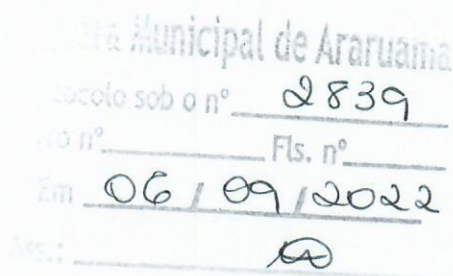 Municipal de Araruama
sob o nº 2839
nº Fls. nº
Em 06 / 09 / 2022
Ass.: